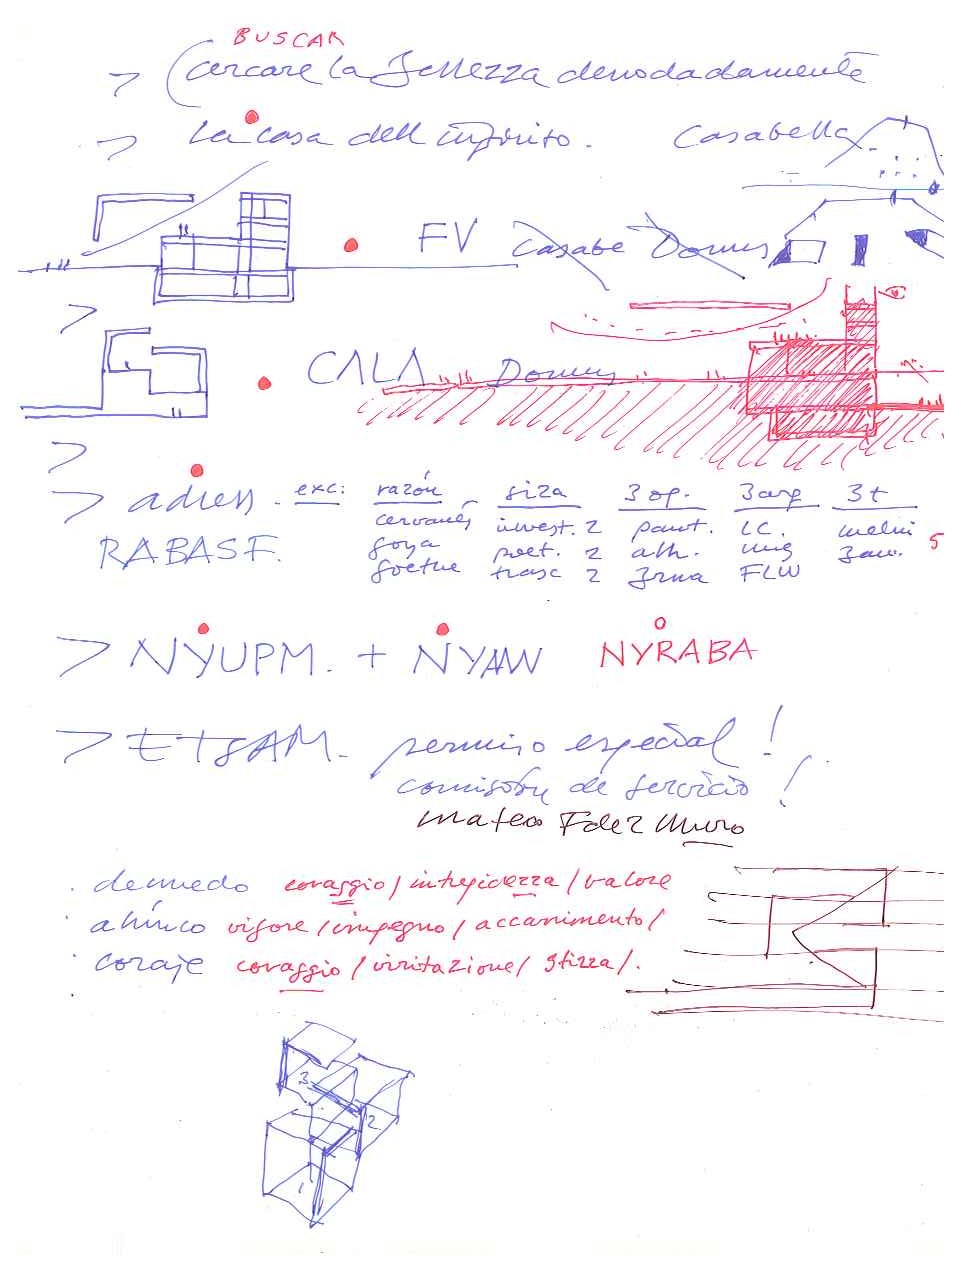 BUSCAR
> (cercare la Bellezza denodadamente
> La casa dell infinito. Casabella
FV Casabe Domus
>
CALA Domus
>
> adress - exc: razón - siza 3 op. 3 arq 3 t
RABASF. cervantes invest. 2 pant. LC. melni
goya poet. 2 alh. mies 5
goethe trasc 2 FLW
> NYUPM. + NYAAN NYRABA
> ETSAM. permiso especial!
comisión de servicio!
mateo Fdez Muro
. denuedo coraggio / intrepidezza / valore
. ahínco vigore / impegno / accanimento /
. coraje coraggio / irritazione / stizza /.
3
2
1